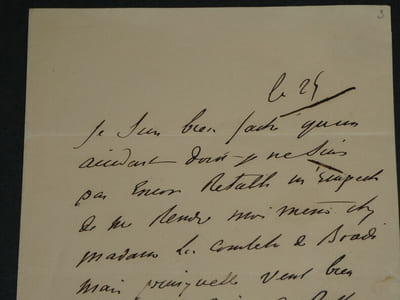 3
le 25
Je suis bien faché qu'un
accident dont je ne suis
pas Encore Retabli m'Empeche
de me Rendre moi meme chez
madame la comtesse de
mais puisquelle veut bien